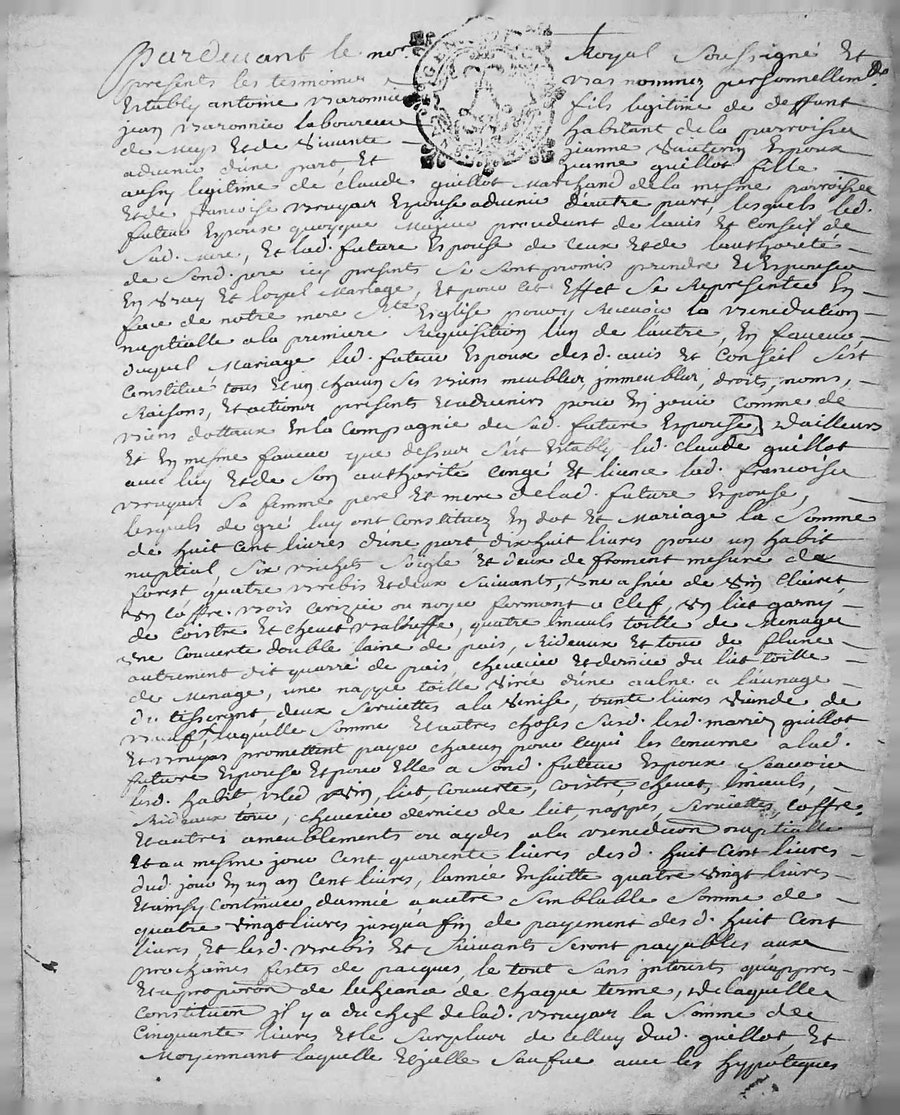 Pardevant le no.re Royal Soussigné Et
presents les tesmoins bas nommez personnellem.t
Estably antoine Baronnier fils legitime de deffunt
jean Baronnier laboureur habitant de la parroisse
de Meys Et de Vivante jeanne Epoux
advenir d'une part, Et jeanne guillot fille
aussy legitime de claude guillot Marchand de la mesme parroisse
Et de francoise Epouse advenir d'autre part, lesquels led.
futeur Epoux quoyque Majeur procedant de l'avis Et Conseil de
Sad. Mere, Et lad. future Epouse de Ceux Et de l'authorité
de Sond. pere icy presents Se Sont promis prendre Et Epouser
En Vray Et loyal Mariage, Et pour Cet Effet Se Representer En
face de notre mere S.te Eglise pour y Recevoir la Benediction
nuptialle a la premiere Requisition l'un de l'autre, En faveur
duquel Mariage led. futeur Epoux desd. avis Et Conseil S'est
Constitué tous Et un chacun Ses biens meubles, jmmeubles, droits, noms,
Raisons, Et actions presents Et advenirs pour En jouir Comme de
biens dottaux En la Compagnie de Sad. future Epouse, d'ailleurs
Et En mesme faveur que dessus S'est Estably led. Claude guillot
avec luy Et de Son authorité Congé Et licence lad. francoise
Sa femme pere Et mere de lad. future Epouse,
lesquels de gré luy ont Constituez En dot Et Mariage la Somme
de huit Cent livres d'une part, dix huit livres pour un habit
nuptial, Six bichets Soigle Et deux de froment mesure de
forest, quatre brebis Et deux Suivants, Une asnée de Vin Clairet,
Un Coffre bois Cerizier ou noyer fermant a Clef, Un liet garny
de Coistre Et chevet, quatre linceuls toille de Menage
Une Couverte double laine de païs, Rideaux Et tour de
autrement dit quarré de païs, chevecier Et dernier du liet toille
de Menage, une nappe toille d'une aulne a l'aunage
du tisserant, deux Serviettes a la Venise, trente livres de
laquelle Somme Et autres choses Susd. lesd. mariez guillot
Et promettent payer chacun pour Ce qui les Concerne a lad.
future Epouse Et pour Elle a Sond. futeur Epoux Scavoir
lesd. habit, bled Vin, liet, Couverte, Coistre chevet, linceuls,
Rideaux tour, chevecier dernier de liet, nappes, Serviettes, Coffre
Et autres ameublements a la Benediction nuptialle
Et au mesme jour Cent quarente livres desd. huit Cent livres
dud. jour En un an Cent livres, l'année Ensuitte quatre Vingt livres
Et ainsy Continuer d'année a autre Semblable Somme de
quatre Vingt livres jusqu'a fin de payement desd. huit Cent
livres Et lesd. brebis Et Suivants Seront payables aux
prochaines festes de pacques, le tout Sans jnterests qu'appres
Et a proporon de l'echeance de chaque terme, de laquelle
Constituon jl y a du chef de lad. la Somme de
Cinquante livres Et le Surplus de Celluy dud. guillot, Et
Moyennant laquelle avec les hypoteques